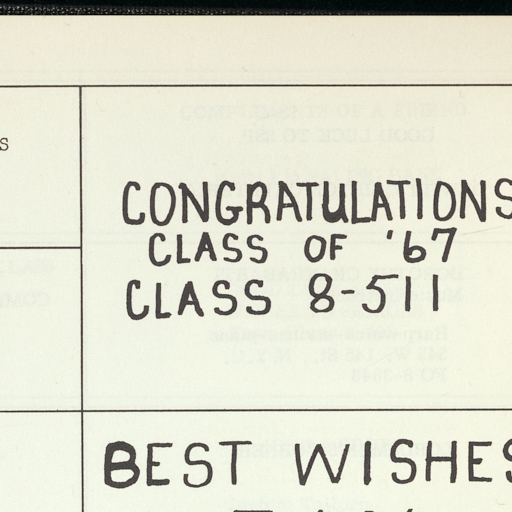 CONGRATULATIONS
CLASS OF '67
CLASS 8-511
BEST WISHES